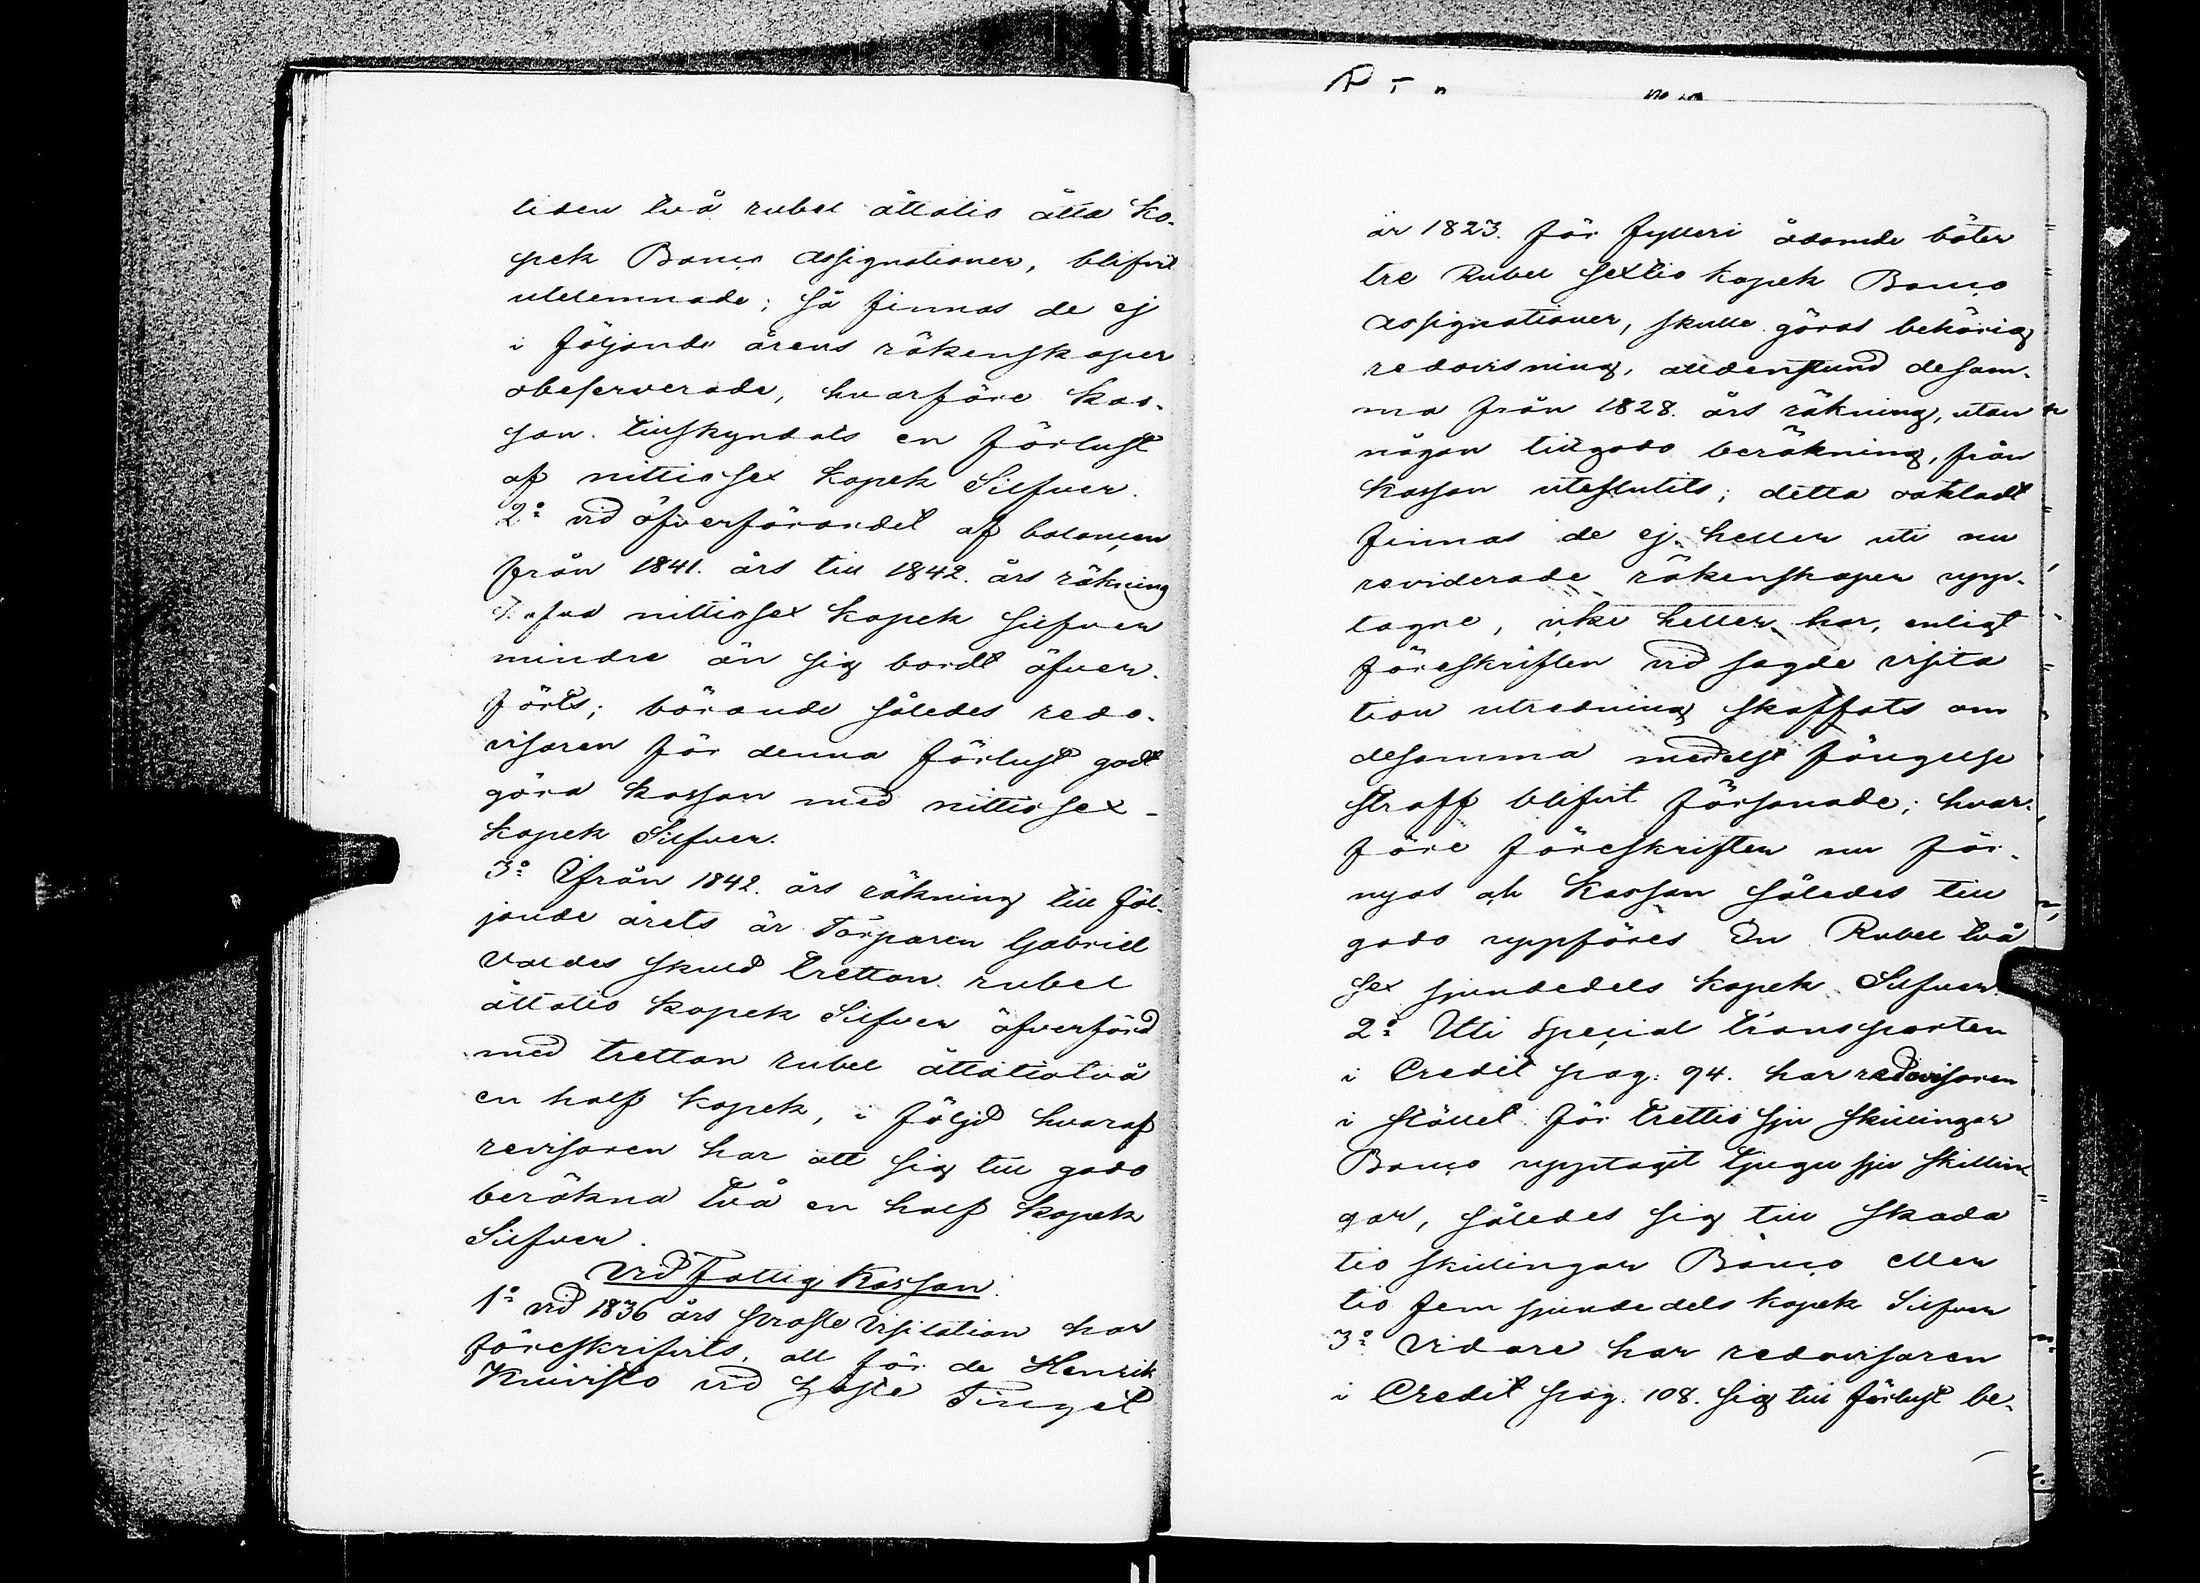 tiden två rubel åttatio åtta ko-
pek Banco Assignationer, blifvit
utelemnade; så finnas de ej
i följande årens räkenskaper
obeserverade, hvarföre kas-
san tillskyndats en förlust
af nittiosex kopek Silfver.
2:o vid öfverförandet af balancen
från 1841. års till 1842. års räkning
nittiosex kopek silfver
mindre än sig bordt öfver-
förts; börande således redo-
visaren för denna förlust godt
göra kassan med nittiosex
kopek Silfver.
3:o Ifrån 1842. års räkning till föl-
jande årets är Torparen Gabriel
skuld tretton rubel
åttatio kopek Silfver öfverförd
med tretton rubel åttatiotvå
en half kopek, i följd hvaraf
revisoren har att sig till godo
beräkna två en half kopek
Silfver.
Vid Fattig Kassan.
1:o vid 1836 års Prosте Visitation har
föreskrifvits, att för de Henrik
Knivisto vid Höste Tinget
år 1823. för fylleri ådömde böter
tre Rubel sextio kopek Banco
Assignationer, skulle göras behörig
redovisning, alldenstund desam-
ma från 1828. års räkning, utan
någon tillgodo beräkning, från
kassan uteslutits; detta oaktadt
finnas de ej heller uti nu
reviderade räkenskaper upp-
tagne, icke heller har, enligt
föreskriften vid sagde visita
tion utredning skaffats om
desamma medelst fängelse
straff blifvit försonade; hvar-
före föreskriften nu för-
nyas och Kassan således till
godo uppföres En Rubel två
sex sjundedels kopek Silfver.
2:o Uti Special transporten
i Credit pag: 94. har redovisaren
i stället för trettio sju skillingar
Banco upptagit tjugu sju skillin
gar, således sig till skada
tio skillingar Banco eller
tio fem sjundedels kopek Silfver
3:o Vidare har redovisaren
i Credit pag. 108. sig till förlust be-